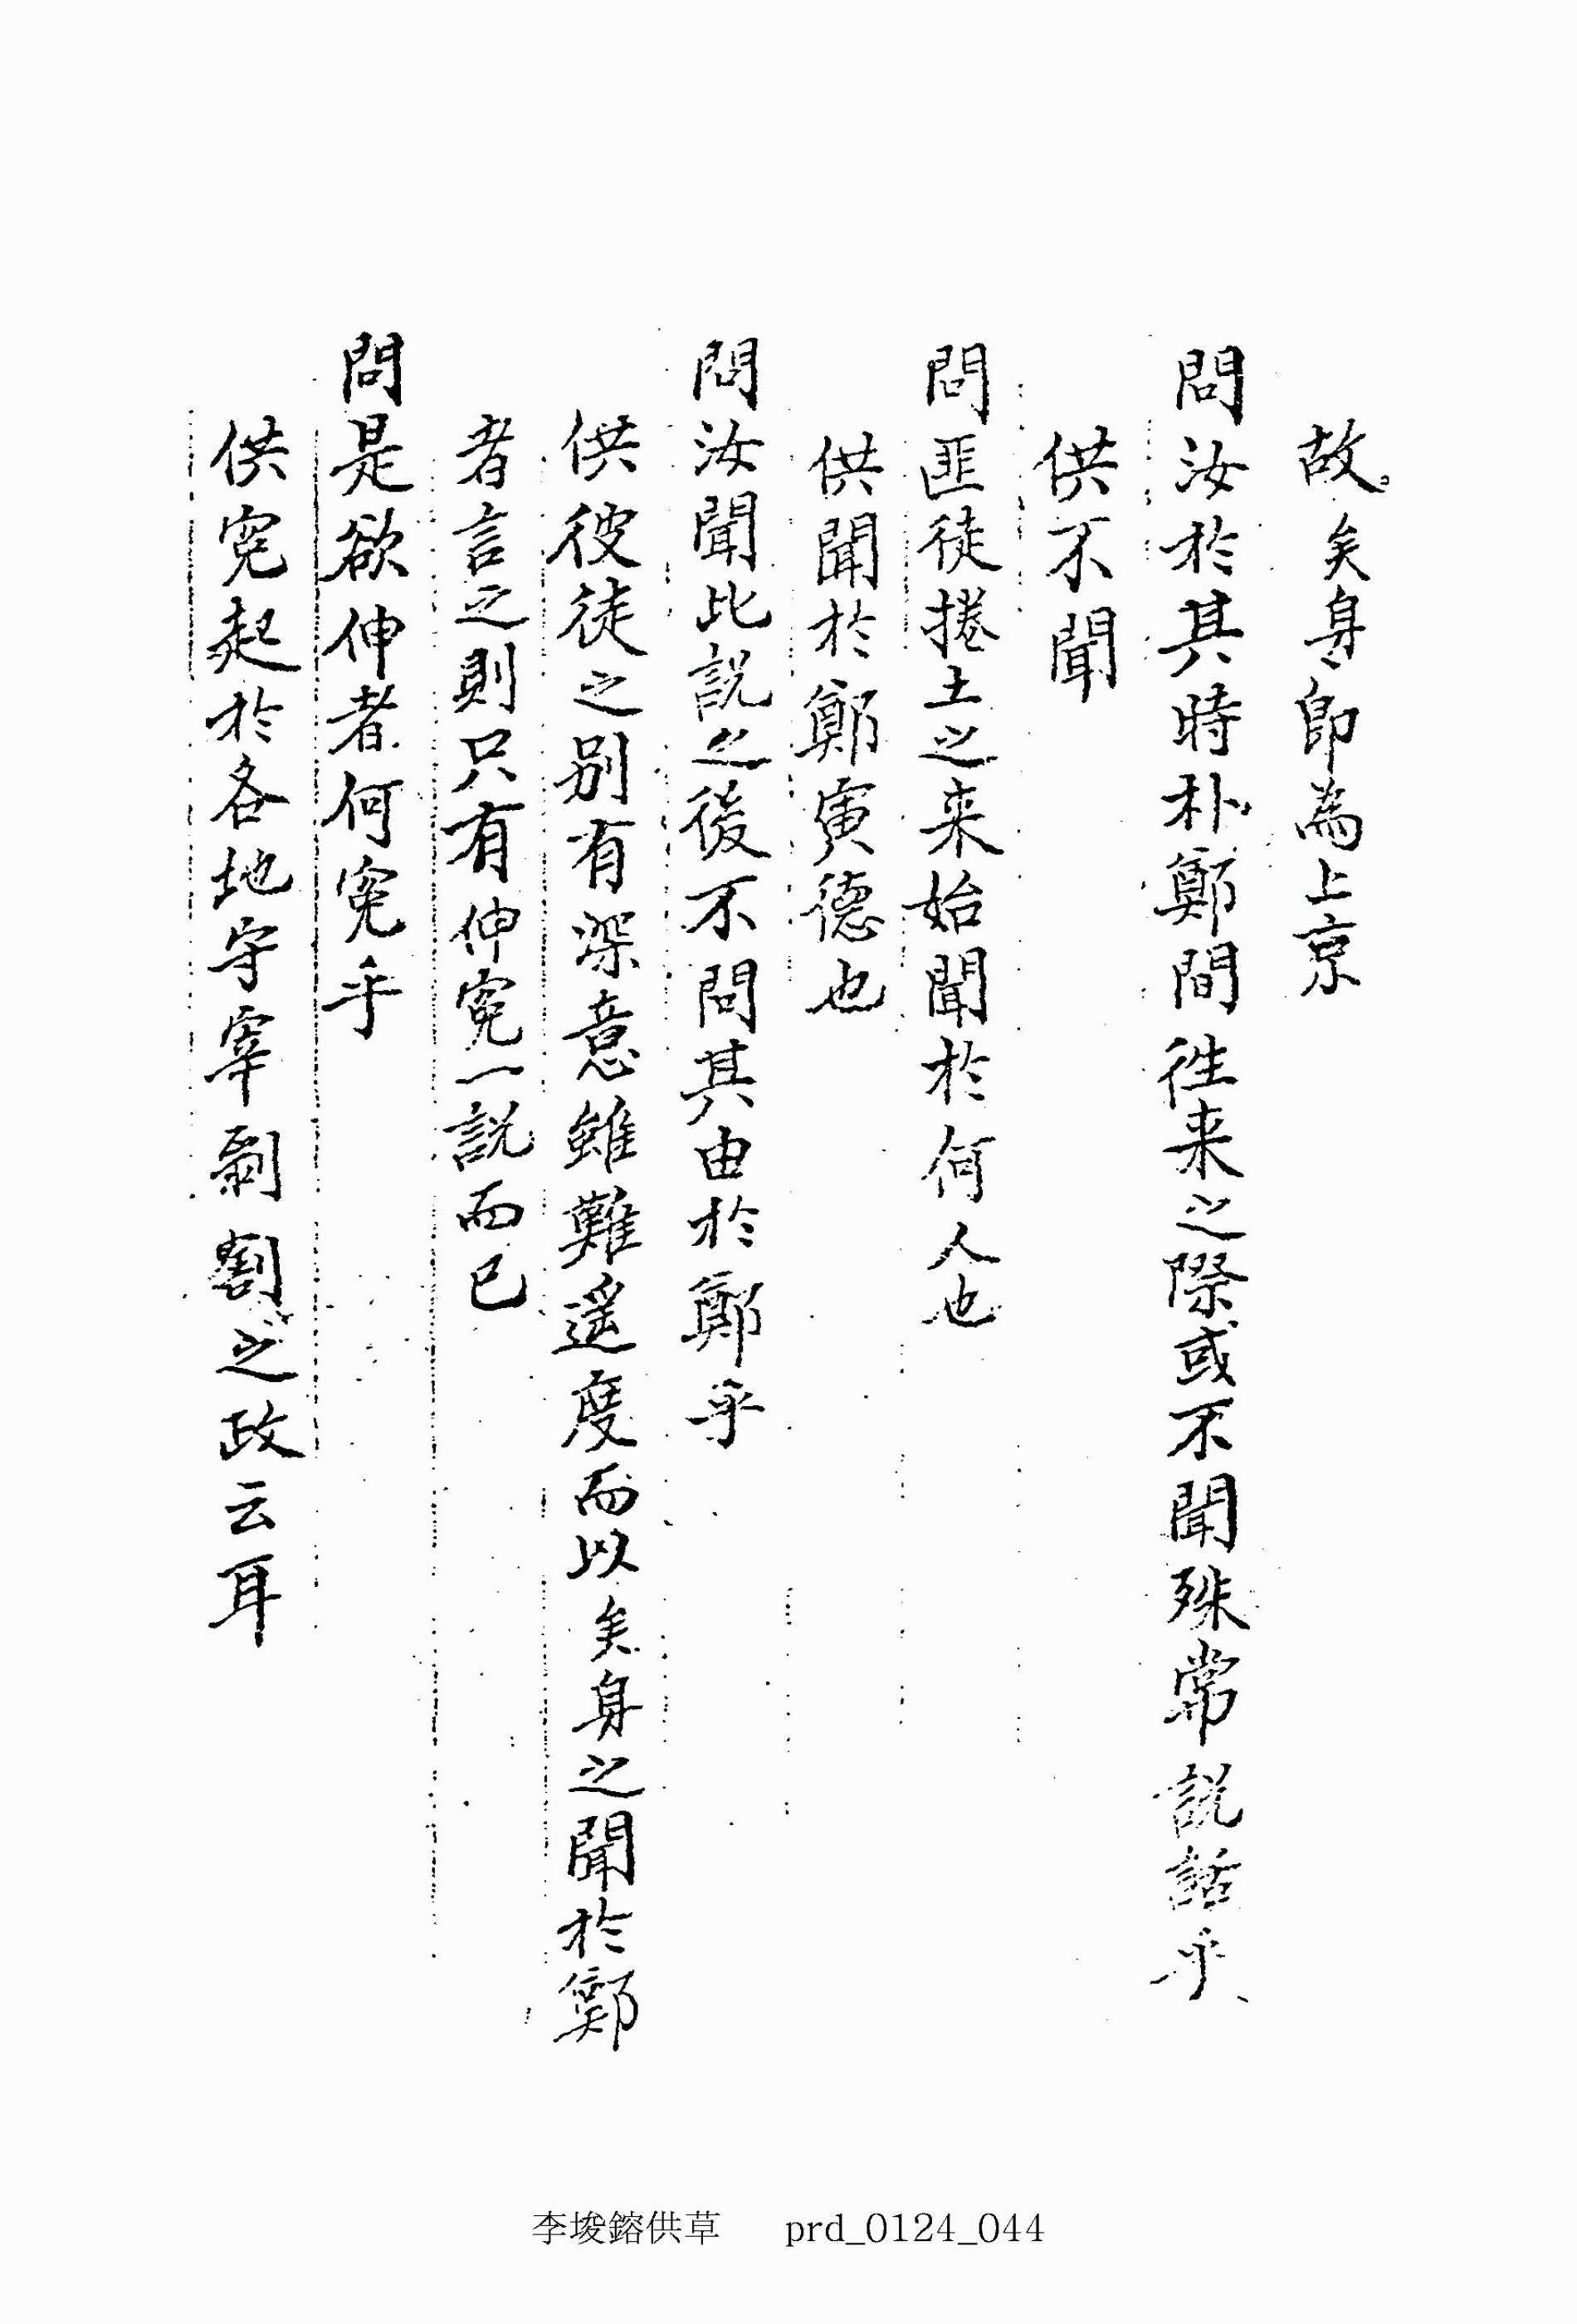 故矣身即為上京
問汝於其時朴鄭間徃来之際或不聞殊常説話乎
供不聞
問匪徒捲土之来始聞於何人也
供聞於鄭寅德也
問汝聞此説之後不問其由於鄭乎
供彼徒之别有深意雖難遥度而以矣身之聞於鄭
者言之則只有伸寃一説而已
問是欲伸者何寃乎
供寃起於各地守宰剥割之政云耳
李埈鎔供草 prd_0124_044